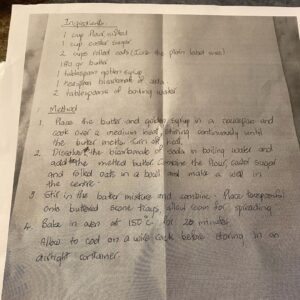 Ingredients
1 cup flour sifted
1 cup castor sugar
2 cups rolled oats (I use the plain label ones)
180 gr butter
1 tablespoon golden syrup
1 teaspoon bicarbonate of soda
2 tablespoons of boiling water
Method
1. Place the butter and golden syrup in a saucepan and
cook over a medium heat, stirring continuously until
the butter melts. Turn off heat.
2. Dissolve the bicarbonate of soda in boiling water and
add to the melted butter. Combine the flour, castor sugar
and rolled oats in a bowl and make a well in
the centre.
3 Stir in the butter mixture and combine. Place teaspoonfuls
onto buttered scone trays, allow room for spreading
4. Bake in oven at 150°C for 20 minutes.
Allow to cool on a wire rack before storing in an
airtight container.